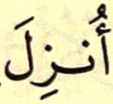 أُنزِلَ